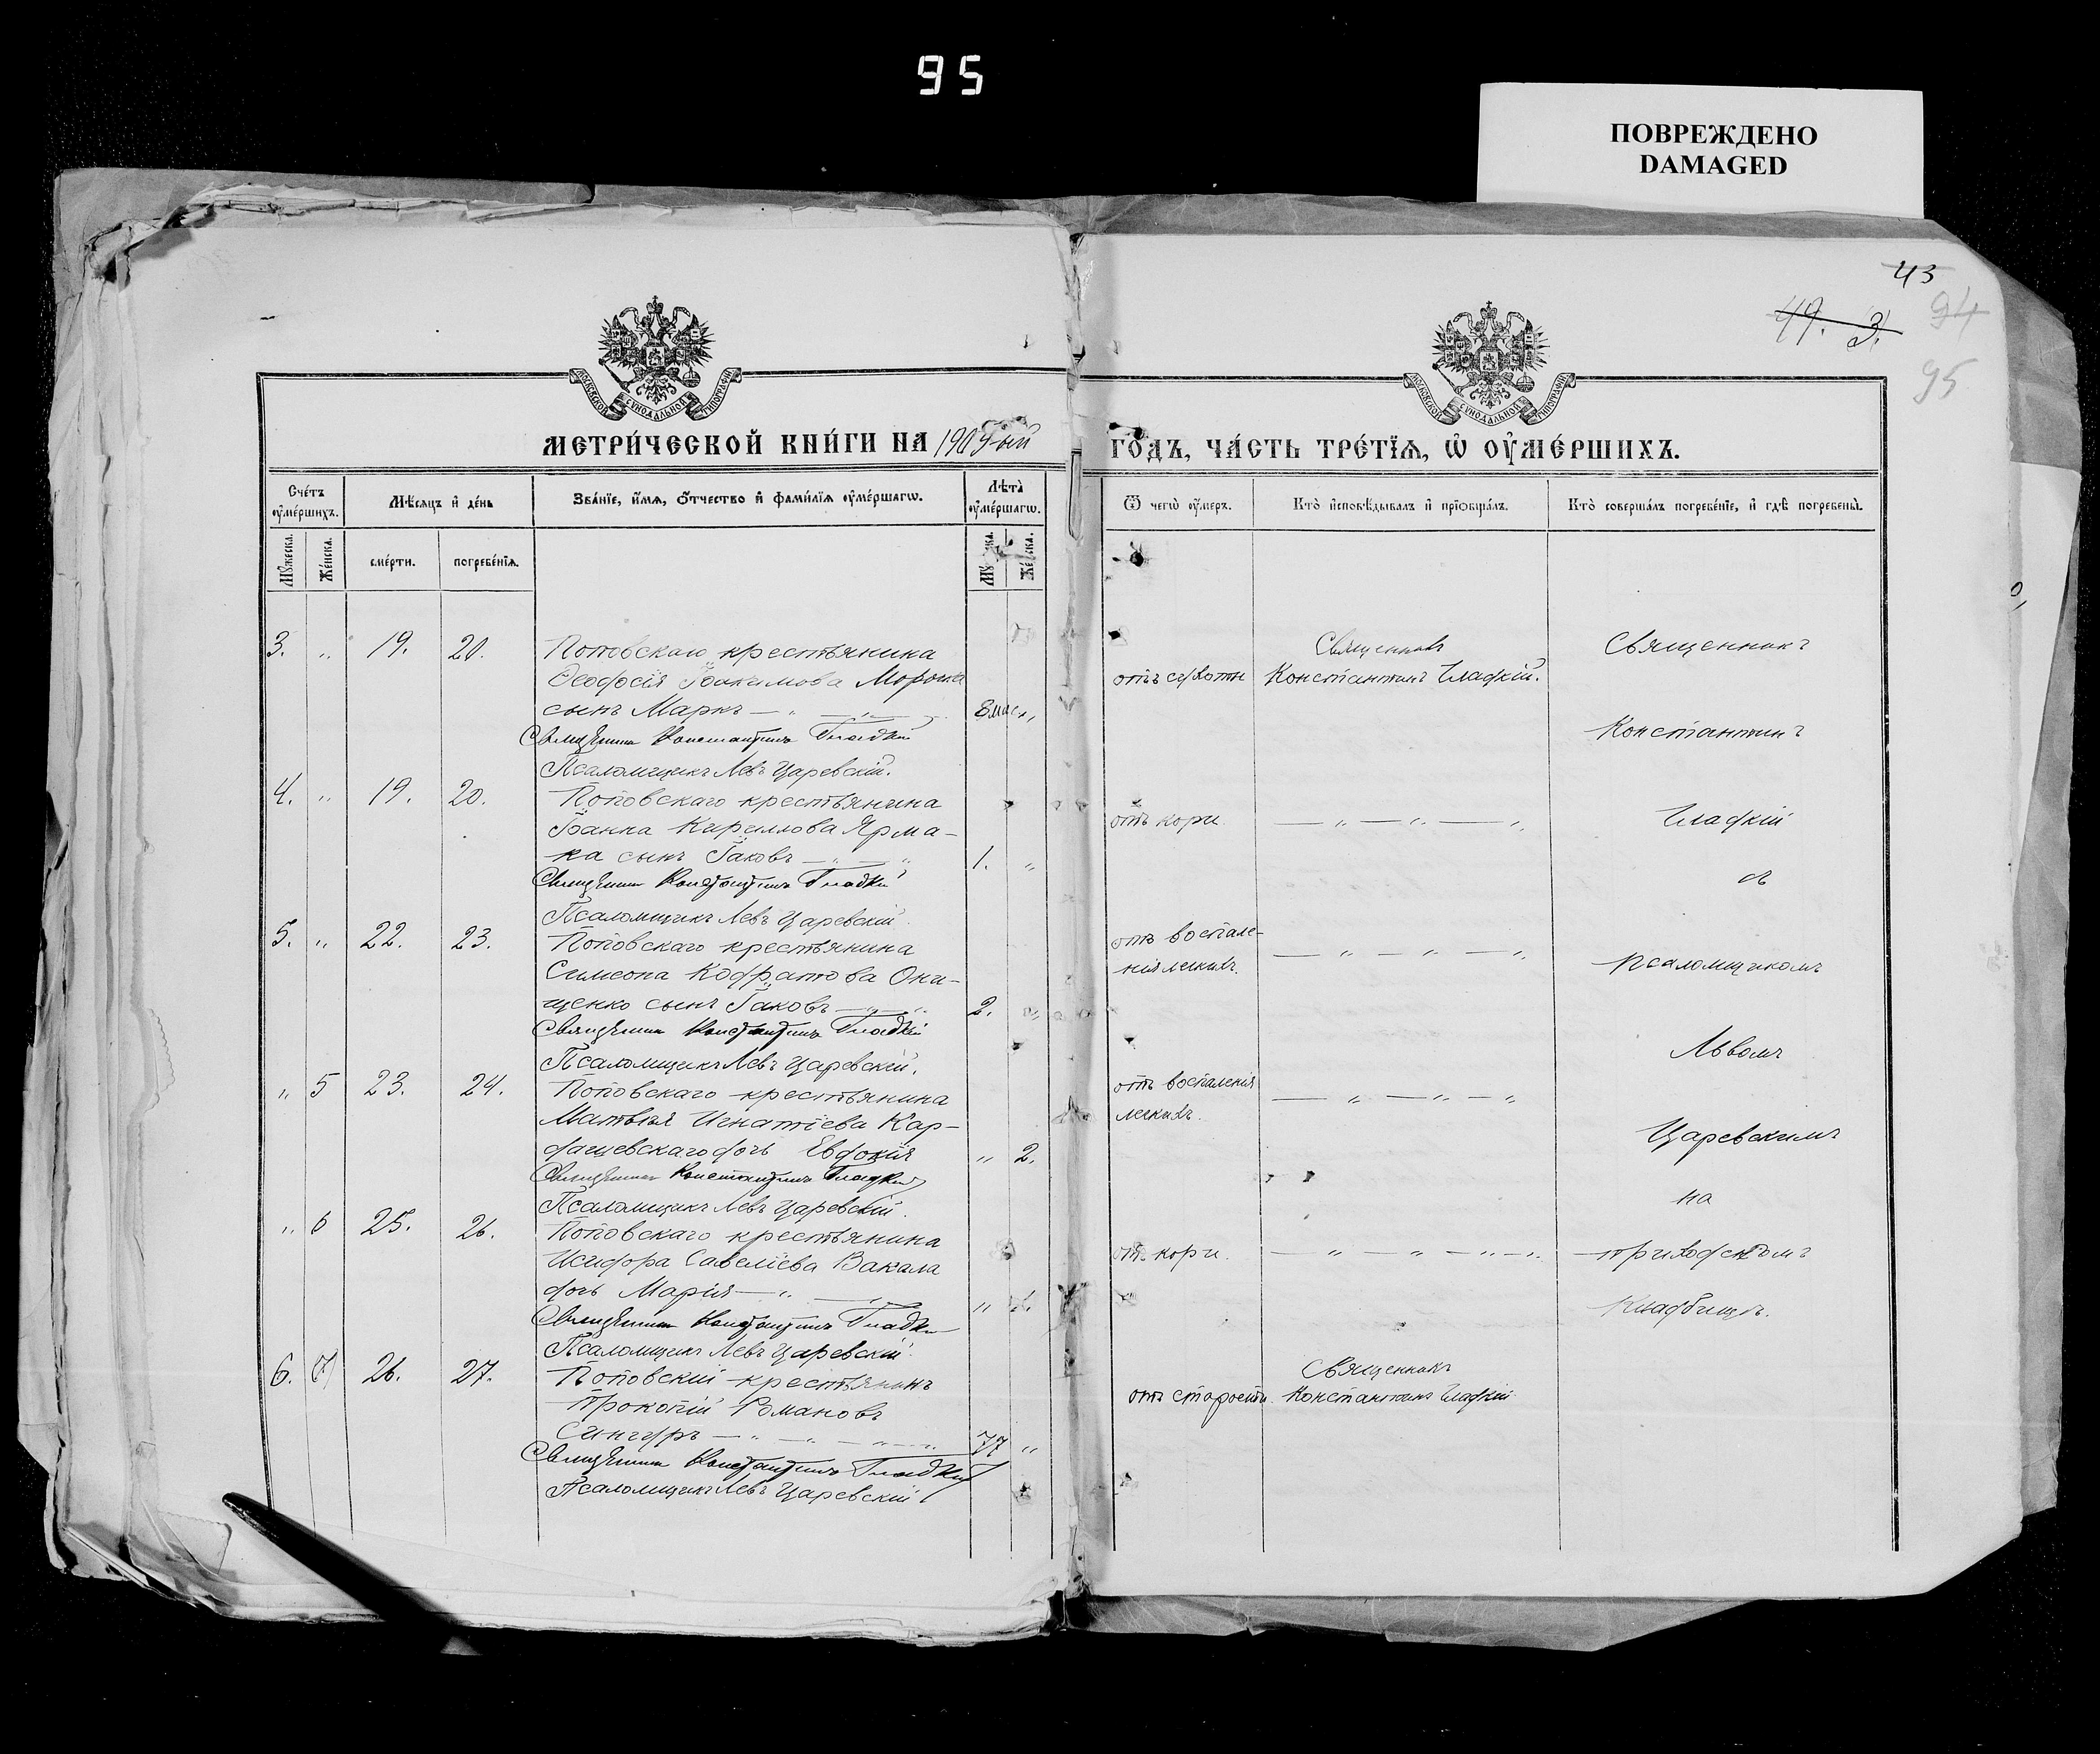 95
ПОВРЕЖДЕНО
DAMAGED
43
49. 3.
94
95
МОСКОВСКОЙ СѴНОДАЛЬНОЙ ТИПОГРАФІИ
МОСКОВСКОЙ СѴНОДАЛЬНОЙ ТИПОГРАФІИ
МЕТРИ́ЧЕСКОЙ КНИ́ГИ НА 1909-ый
ГО́ДЪ, ЧА́СТЬ ТРЕ́ТЇѦ, Ѡ҆ ОУ҆МЕ́РШИХЪ.
Сче́тъ оу҆ме́ршихъ.
Мѣ́сяцъ и҆ де́нь
Зва́нїе, и҆́мѧ, ѻ҆́тчество и҆ фами́лїѧ оу҆ме́ршагѡ.
Лѣ́та̀ оу҆ме́ршагѡ.
Ѿ чегѡ̀ оу҆́меръ.
Кто̀ и҆сповѣ́дывалъ и҆ прїѡбща́лъ.
Кто̀ соверша́лъ погребе́нїе, и҆ гдѣ̀ погребены̀.
Мꙋ́жеска.
Же́нска.
сме́рти.
погребе́нїѧ.
Же́нска.
3. " 19. 20. Поповскаго крестьянина
Ѳеодосія Іоакимова
сынъ Маркъ — " — " — 8 мѣс.
Священникъ Константинъ Гладкій
Псаломщикъ Левъ Царевскій.
отъ сухотъ
Священникъ
Константинъ Гладкій.
Священникъ
Константинъ
4. " 19. 20. Поповскаго крестьянина
Іоанна Кириллова Ярма-
ка сынъ Іаковъ — " — " 1. "
Священникъ Константинъ Гладкій
Псаломщикъ Левъ Царевскій.
отъ кори. — " — " — "
Гладкій
съ
5. " 22. 23. Поповскаго крестьянина
Симеона Кодратова Они-
щенко сынъ Іаковъ — " 2. "
Священникъ Константинъ Гладкій
Псаломщикъ Левъ Царевскій.
отъ воспале-
нія легкихъ. — " — " — "
псаломщикомъ
Львомъ
" 5 23. 24. Поповскаго крестьянина
Матвѣя Игнатіева Кар-
дашевскаго дочь Евдокія " 2.
Священникъ Константинъ Гладкій
Псаломщикъ Левъ Царевскій.
отъ воспаленія
легкихъ. — " — " — "
Царевскимъ
на
" 6 25. 26. Поповскаго крестьянина
Исидора Савеліева Вакала
дочь Марія — " — "
Священникъ Константинъ Гладкій
Псаломщикъ Левъ Царевскій.
отъ кори. — " — " — " — "
приходскомъ
кладбищѣ.
6. 26. 27. Поповскій крестьянинъ
Прокопій Романовъ
— " — " — " — " 77 "
Священникъ Константинъ Гладкій
Псаломщикъ Левъ Царевскій
отъ старости
Священникъ
Константинъ Гладкій